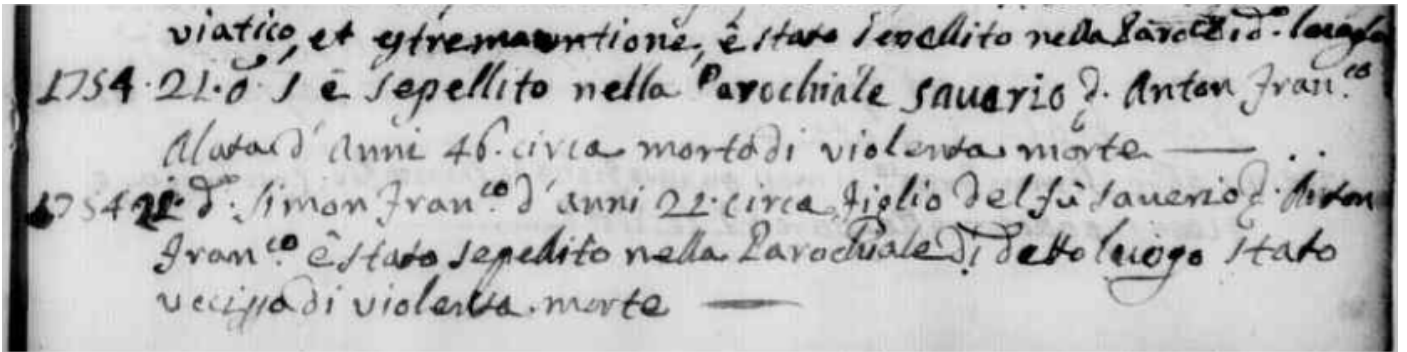 viatico, et estremauntione, è stato sepellito nella Paroch. d.º luogo
1754. 21. d.º s'è sepellito nella Parochiale Sauerio q. Anton Fran.co
Alata d'anni 46. circa morto di violenta morte —
1754 21. d.º Simon Fran.co d'anni 22. circa, figlio del fù Sauerio q. Anton
Fran.co è stato sepellito nella Parochiale di detto luogo stato
uccisso di violenta morte —